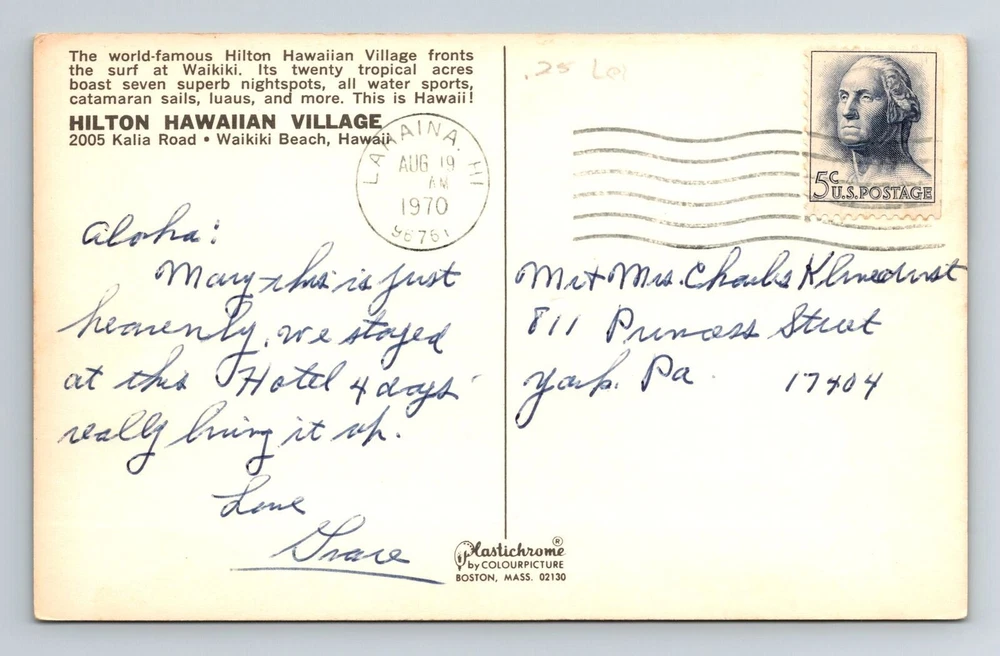 The world-famous Hilton Hawaiian Village fronts
the surf at Waikiki. Its twenty tropical acres
boast seven superb nightspots, all water sports,
catamaran sails, luaus, and more. This is Hawaii!
HILTON HAWAIIAN VILLAGE
2005 Kalia Road • Waikiki Beach, Hawaii
LAHAINA, HI
AUG 19
AM
1970
96761
.25
5c U.S. POSTAGE
Aloha:
Mary this is just
heavenly, we stayed
at this Hotel 4 days
really living it up.
Love
Grace
Mr + Mrs. Charles Klinedinst
811 Princess Street
York. Pa. 17404
Plastichrome®
by COLOURPICTURE
BOSTON, MASS. 02130